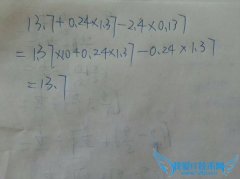 13.7+0.24×1.37-2.4×0.137
=1.37×10+0.24×1.37-0.24×1.37
=13.7